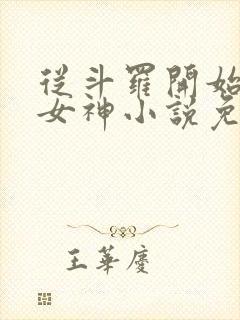 從斗羅開始
女神小說免
王華慶